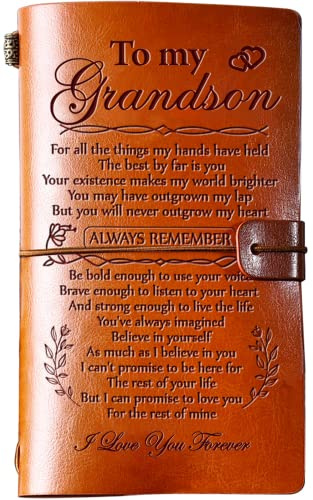 To my
Grandson
For all the things my hands have held
The best by far is you
Your existence makes my world brighter
You may have outgrown my lap
But you will never outgrow my heart
ALWAYS REMEMBER
Be bold enough to use your voice
Brave enough to listen to your heart
And strong enough to live the life
You've always imagined
Believe in yourself
As much as I believe in you
I can't promise to be here for
The rest of your life
But I can promise to love you
For the rest of mine
I Love You Forever